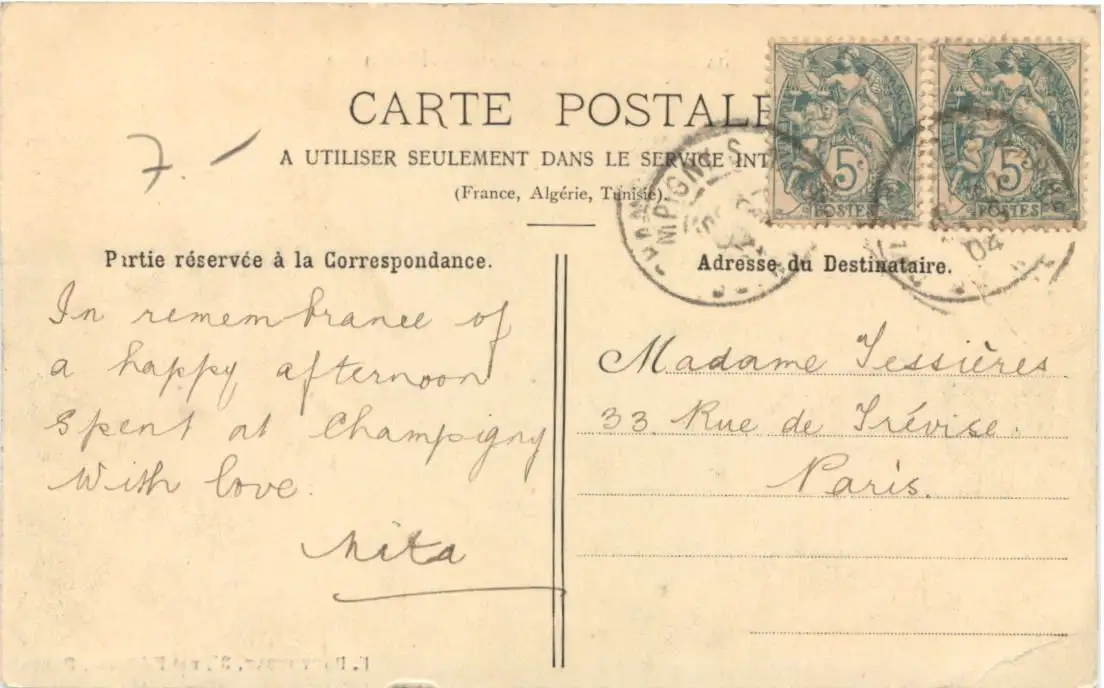 CARTE POSTALE
A UTILISER SEULEMENT DANS LE SERVICE INT
(France, Algérie, Tunisie).
5c
POSTES
5c
POSTES
04
7.-
Partie réservée à la Correspondance.
In remembrance of
a happy afternoon
spent at Champigny
With love.
Nita
Adresse du Destinataire.
Madame Tessières.
33. Rue de Trévise.
Paris.